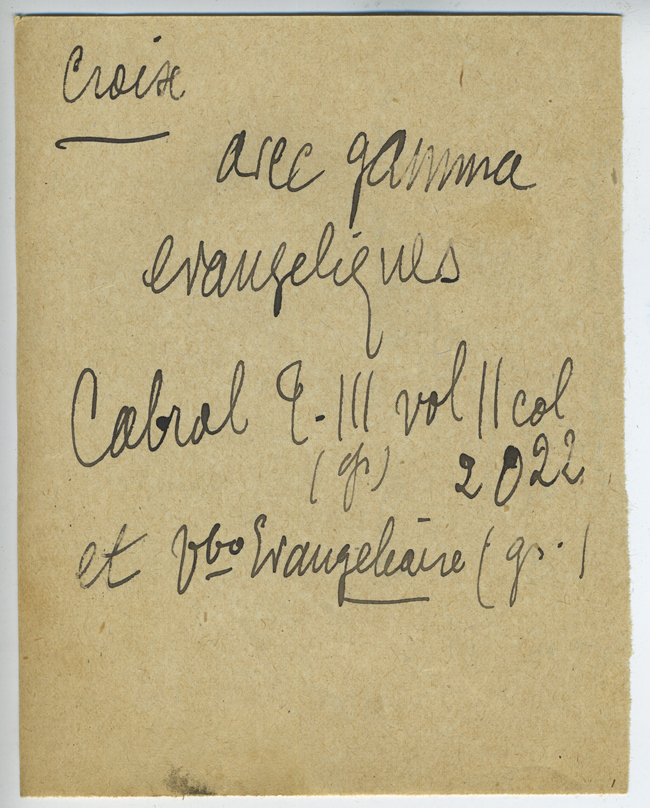 Croix
avec gamma
evangeliques
Cabrol T. III vol II col
(gr) 2022
et Vbo Evangeliaire (gr.)